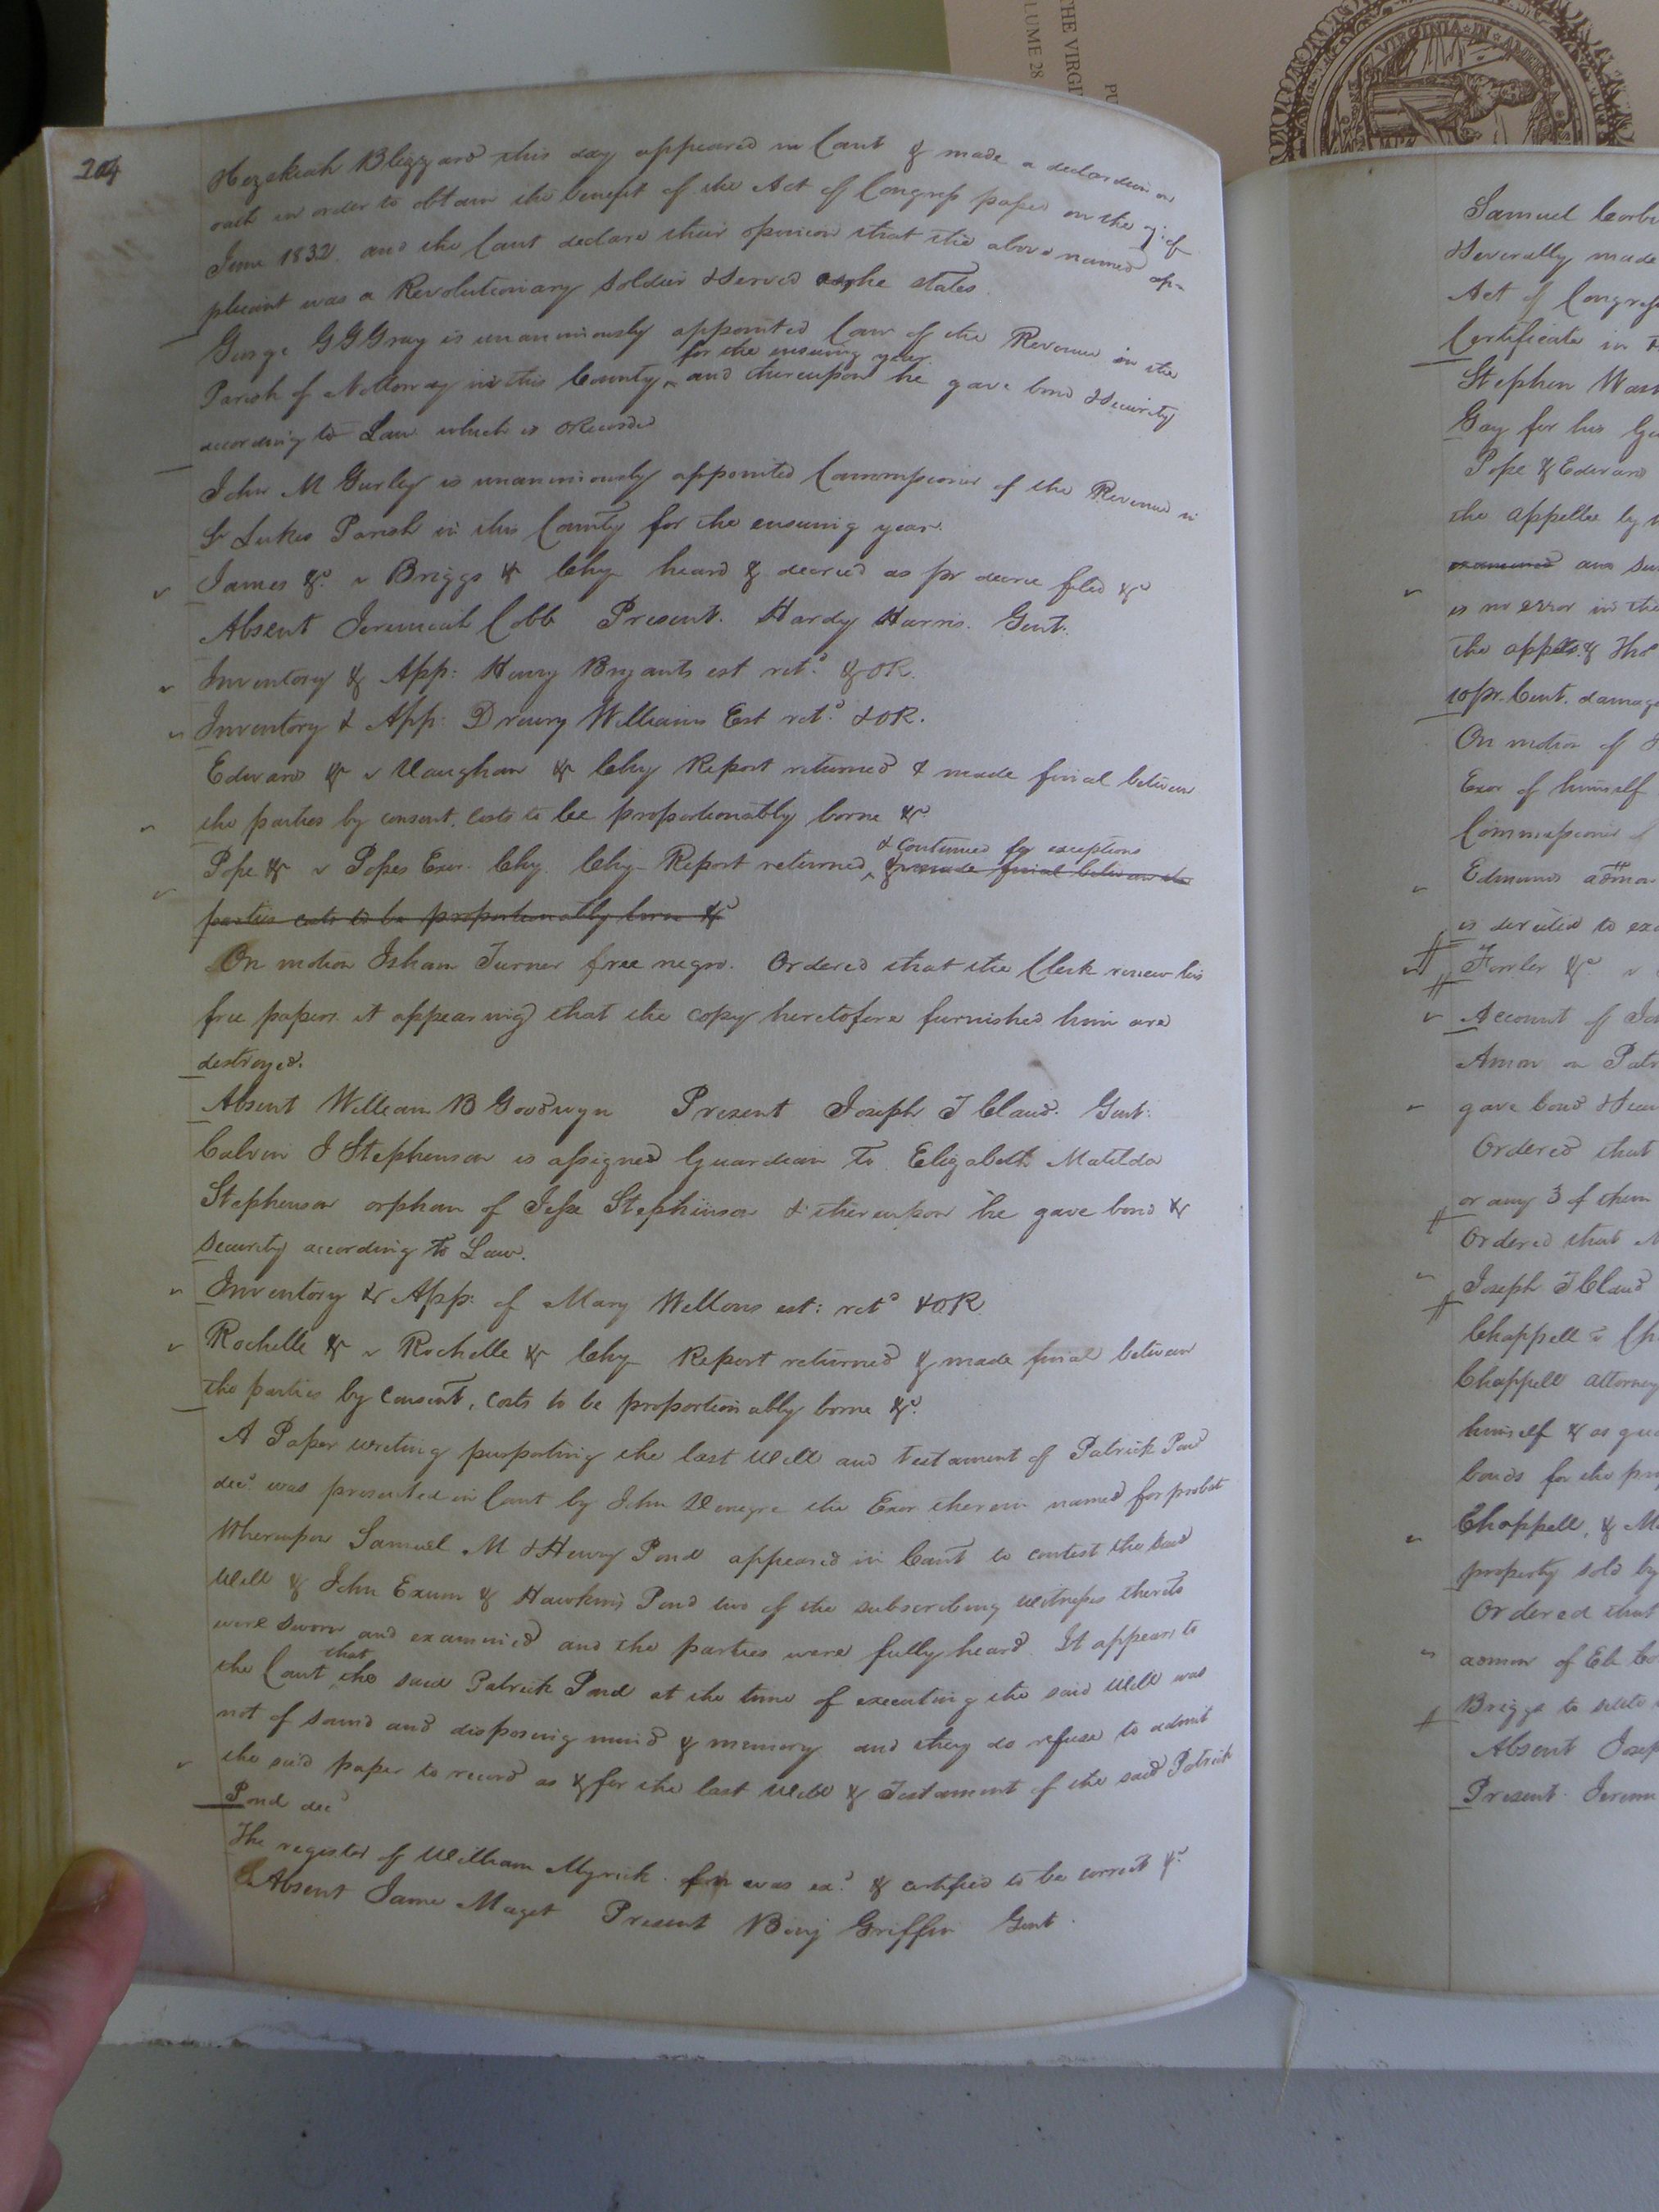 204
Hezekiah Blizzard this day appeared in Court & made a declaration on
oath in order to obtain the benefit of the Act of Congress passed on the 7: of
June 1832. and the Court declare their opinion that the above named ap-
plicant was a Revolutionary Soldier & served as he states.
George G G Gray is unanimously appointed Com of the Revenue in the
for the ensuing year
Parish of Nottoway in this County, and thereupon he gave bond & Security
according to Law which is ORecorded
John M Gurley is unanimously appointed Commissioner of the Revenue in
St Lukes Parish in this County for the ensuing year.
James &c v Briggs & Chy heard & decreed as pr decree filed &c
Absent Jeremiah Cobb Present. Hardy Harris. Gent.
Inventory & App: Henry Bryants est retd. & OR.
Inventory & App: Drewry Williams Est retd. & OR.
Edwards & v Vaughan & Chy Report returned & made final between
the parties by consent. costs to be proportionably borne &c
& Continued for exceptions
Pope & v Popes Exor. Chy. Chy Report returned & made final between the
parties costs to be proportionably borne &c
On motion Isham Turner free negro. Ordered that the Clerk renew his
free papers it appearing that the copy heretofore furnished him are
destroyed.
Absent William B Goodwyn Present Joseph T Claud. Gent:
Calvin J Stephenson is assigned Guardian to Elizabeth Matilda
Stephenson orphan of Jesse Stephenson & thereupon he gave bond &
security according to Law.
Inventory & App: of Mary Wellons est: retd & OR
Rochelle & v Rochelle & Chy Report returned & made final between
the parties by consent, costs to be proportionably borne &c.
A Paper writing purporting the last Will and testament of Patrick Pond
decd was presented in Court by John the Exor therein named for probat
Whereupon Samuel M & Henry Pond appeared in Court to contest the said
Will & John Exum & Hawkins Pond two of the subscribing Witnesses thereto
were sworn and examined and the parties were fully heard. It appears to
that
the Court the said Patrick Pond at the time of executing the said Will was
not of sound and disposing mind & memory and they do refuse to admit
the said paper to record as & for the last Will & Testament of the said Patrick
Pond decd
The register of William Myrick. fn was exd. & certified to be correct &c
Absent James Maget Present Benj Griffin Gent.
THE VIRGI
LUME 28
PU
VIRGINIA IN AM
Samuel
Severally made
Act of Congress
Certificate in
Stephen
Gay for his
Pope & Edward
the appellee by
examined and
is no error in the
the appts. & The
10 pr. Cent. damage
On motion of
Exor of himself
Commissioner of
Edmunds admor
is directed to
Fowler &c v
Account of
Amon on
gave bond &
Ordered that
or any 3 of them
Ordered that
Joseph T Claud
Chappell v
Chappell attorney
himself & as
bonds for the
Chappell, &
property sold by
Ordered that
admor of
Briggs to settle
Absent
Present